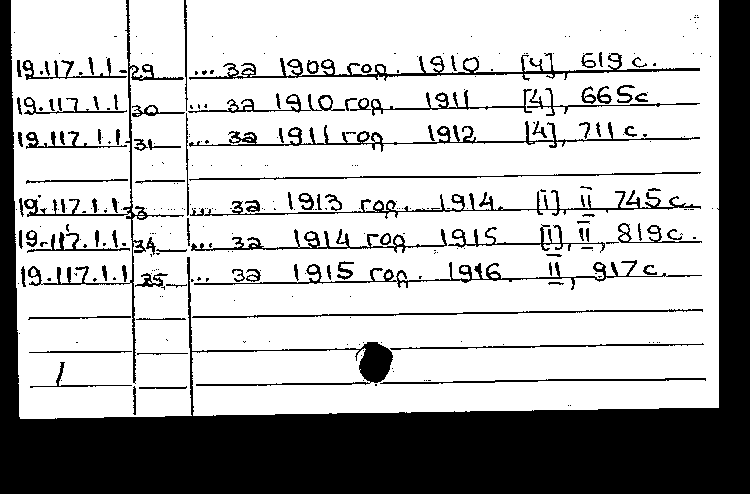 19.117.1.1-29 ... за 1909 год. 1910. [4], 619 с.
19.117.1.1 30 ... за 1910 год. 1911 [4], 665с
19.117.1.1. 31 ... за 1911 год. 1912 [4], 711 с.
19.117.1.1 33 ... за 1913 год. 1914. [I], II 745 с.
19.117.1.1. 34. ... за 1914 год. 1915. [I], II, 819 с.
19.117.1.1 35 ... за 1915 год. 1916. II, 917 с.
1